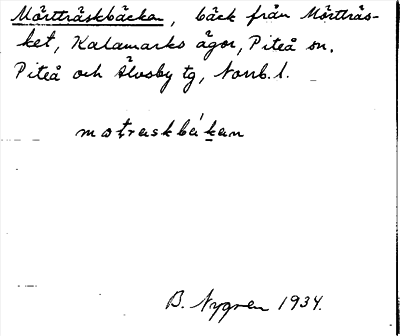 Mörtträskbäcken, bäck från Mörtträs-
ket, Kalamarks ägor, Piteå sn.
Piteå och Älvsby tg, Norrb. l.
B. Nygren 1934.